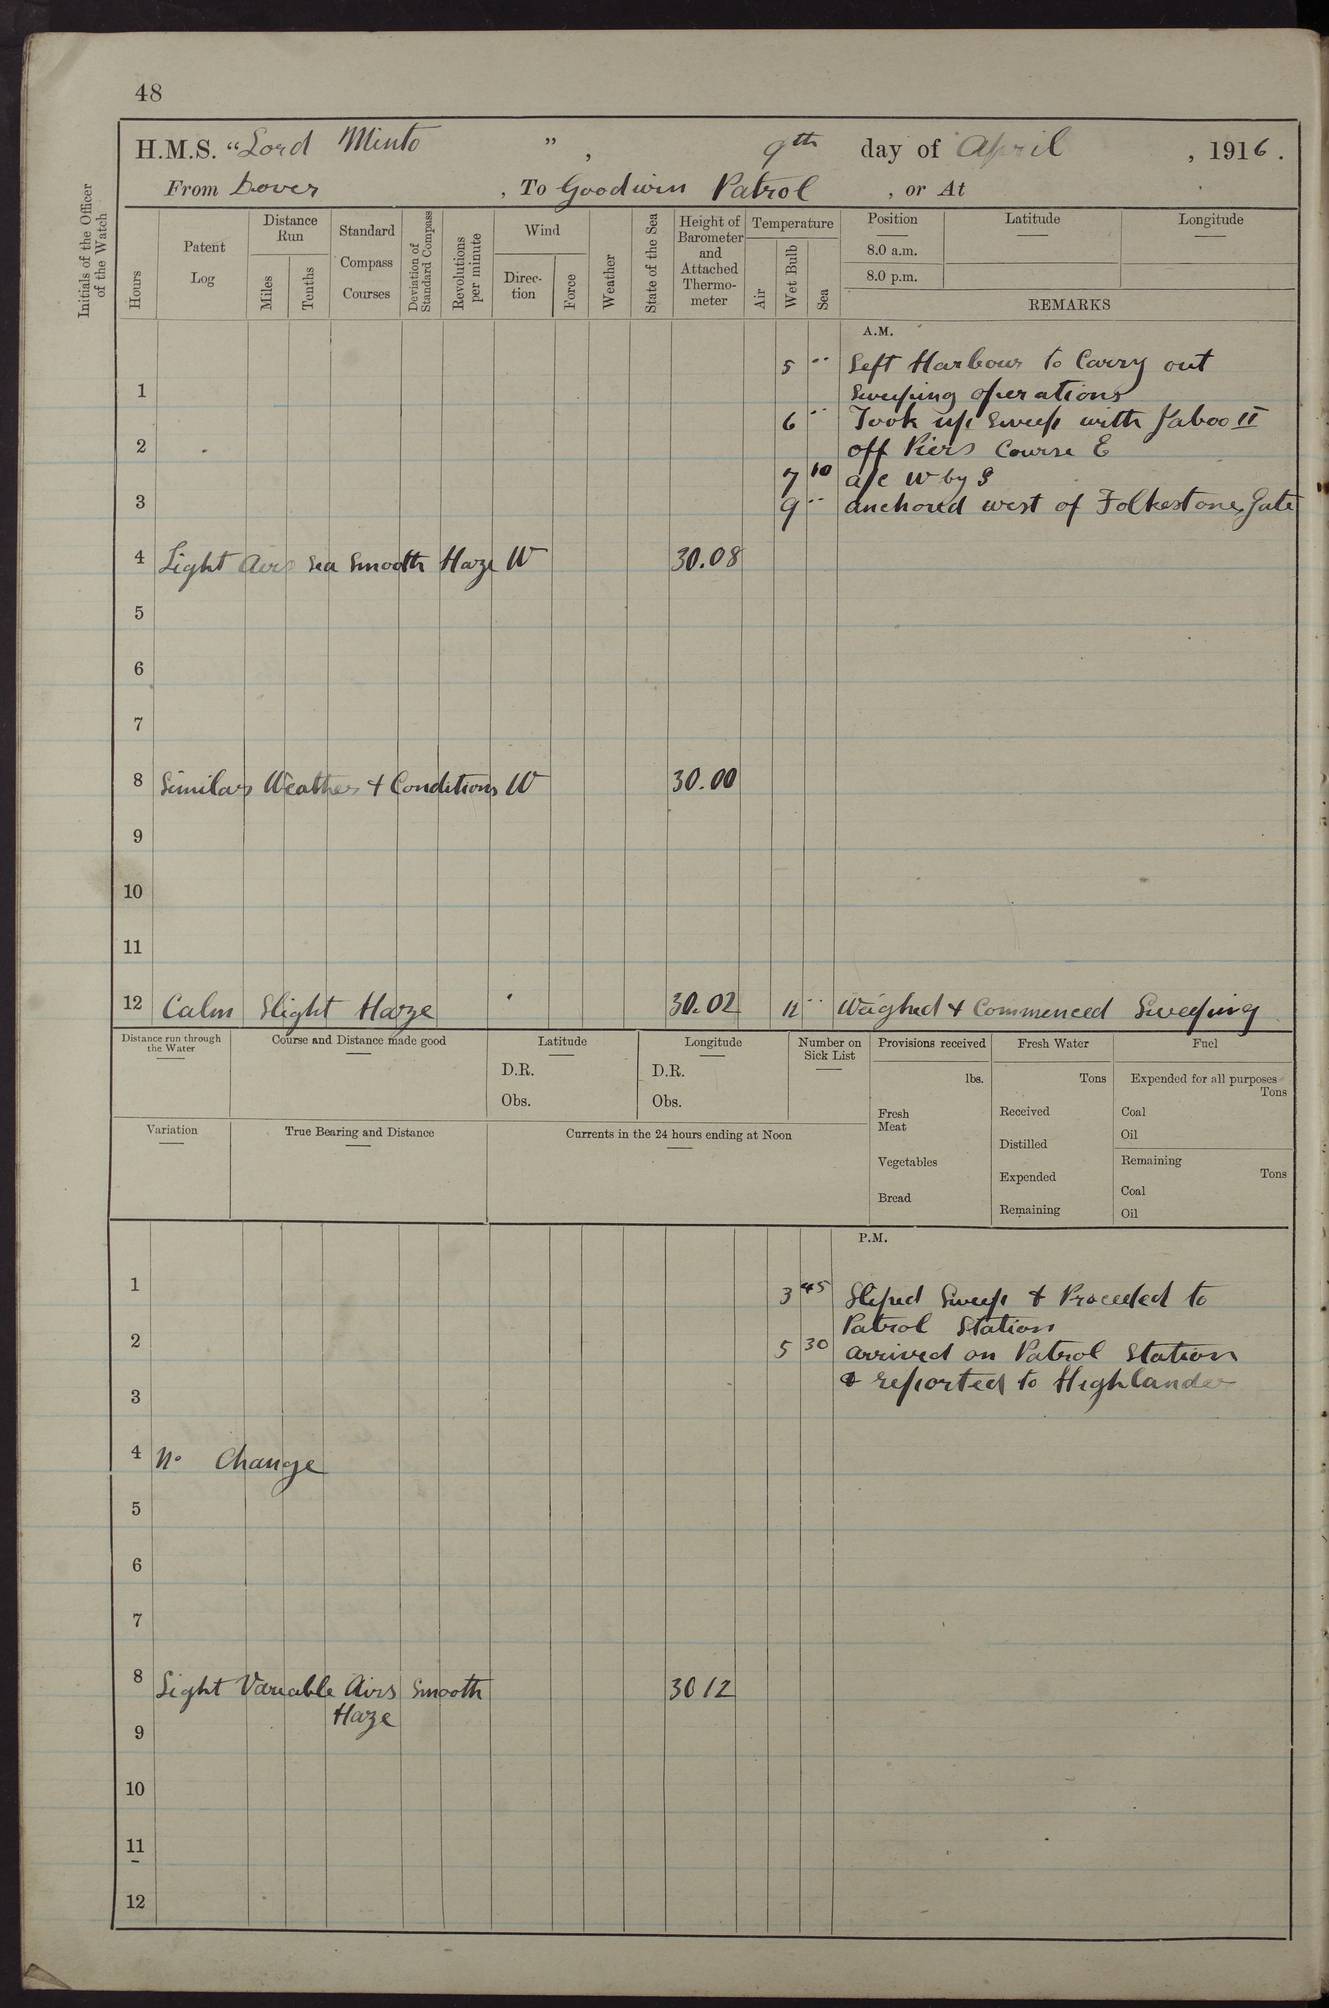 48
H.M.S. “Lord Minto ”, 9th day of April, 1916.
From Dover, To Goodwin Patrol, or At
Initials of the Officer of the Watch
Hours
Patent Log
Distance Run
Miles
Tenths
Standard Compass Courses
Deviation of Standard Compass
Revolutions per minute
Wind
Direc-tion
Force
Weather
State of the Sea
Height of Barometer and Attached Thermo-meter
Temperature
Air
Wet Bulb
Sea
Position
Latitude
Longitude
8.0 a.m.
8.0 p.m.
REMARKS
A.M.
5 .. Left Harbour to Carry out
1 Sweeping operations
6 .. Took up Sweep with Jaboo II
2 off Piers Course E
7 10 a/c W by S
3 9 .. anchored west of Folkestone Gate
4 Light Airs Sea Smooth Haze W 30.08
5
6
7
8 Similar Weather + Conditions W 30.00
9
10
11
12 Calm Slight Haze 30.02 12 .. Weighed + Commenced Sweeping
Distance run through the Water
Course and Distance made good
Latitude
D.R.
Obs.
Longitude
D.R.
Obs.
Number on Sick List
Provisions received
lbs.
Fresh Meat
Vegetables
Bread
Fresh Water
Tons
Received
Distilled
Expended
Remaining
Fuel
Expended for all purposes
Tons
Coal
Oil
Remaining
Tons
Coal
Oil
Variation
True Bearing and Distance
Currents in the 24 hours ending at Noon
P.M.
1 3 45 Sliped Sweep + Proceeded to
Patrol Station
2 5 30 arrived on Patrol Station
+ reported to Highlander
3
4 No Change
5
6
7
8 Light Variable Airs Smooth 30 12
Haze
9
10
11
12